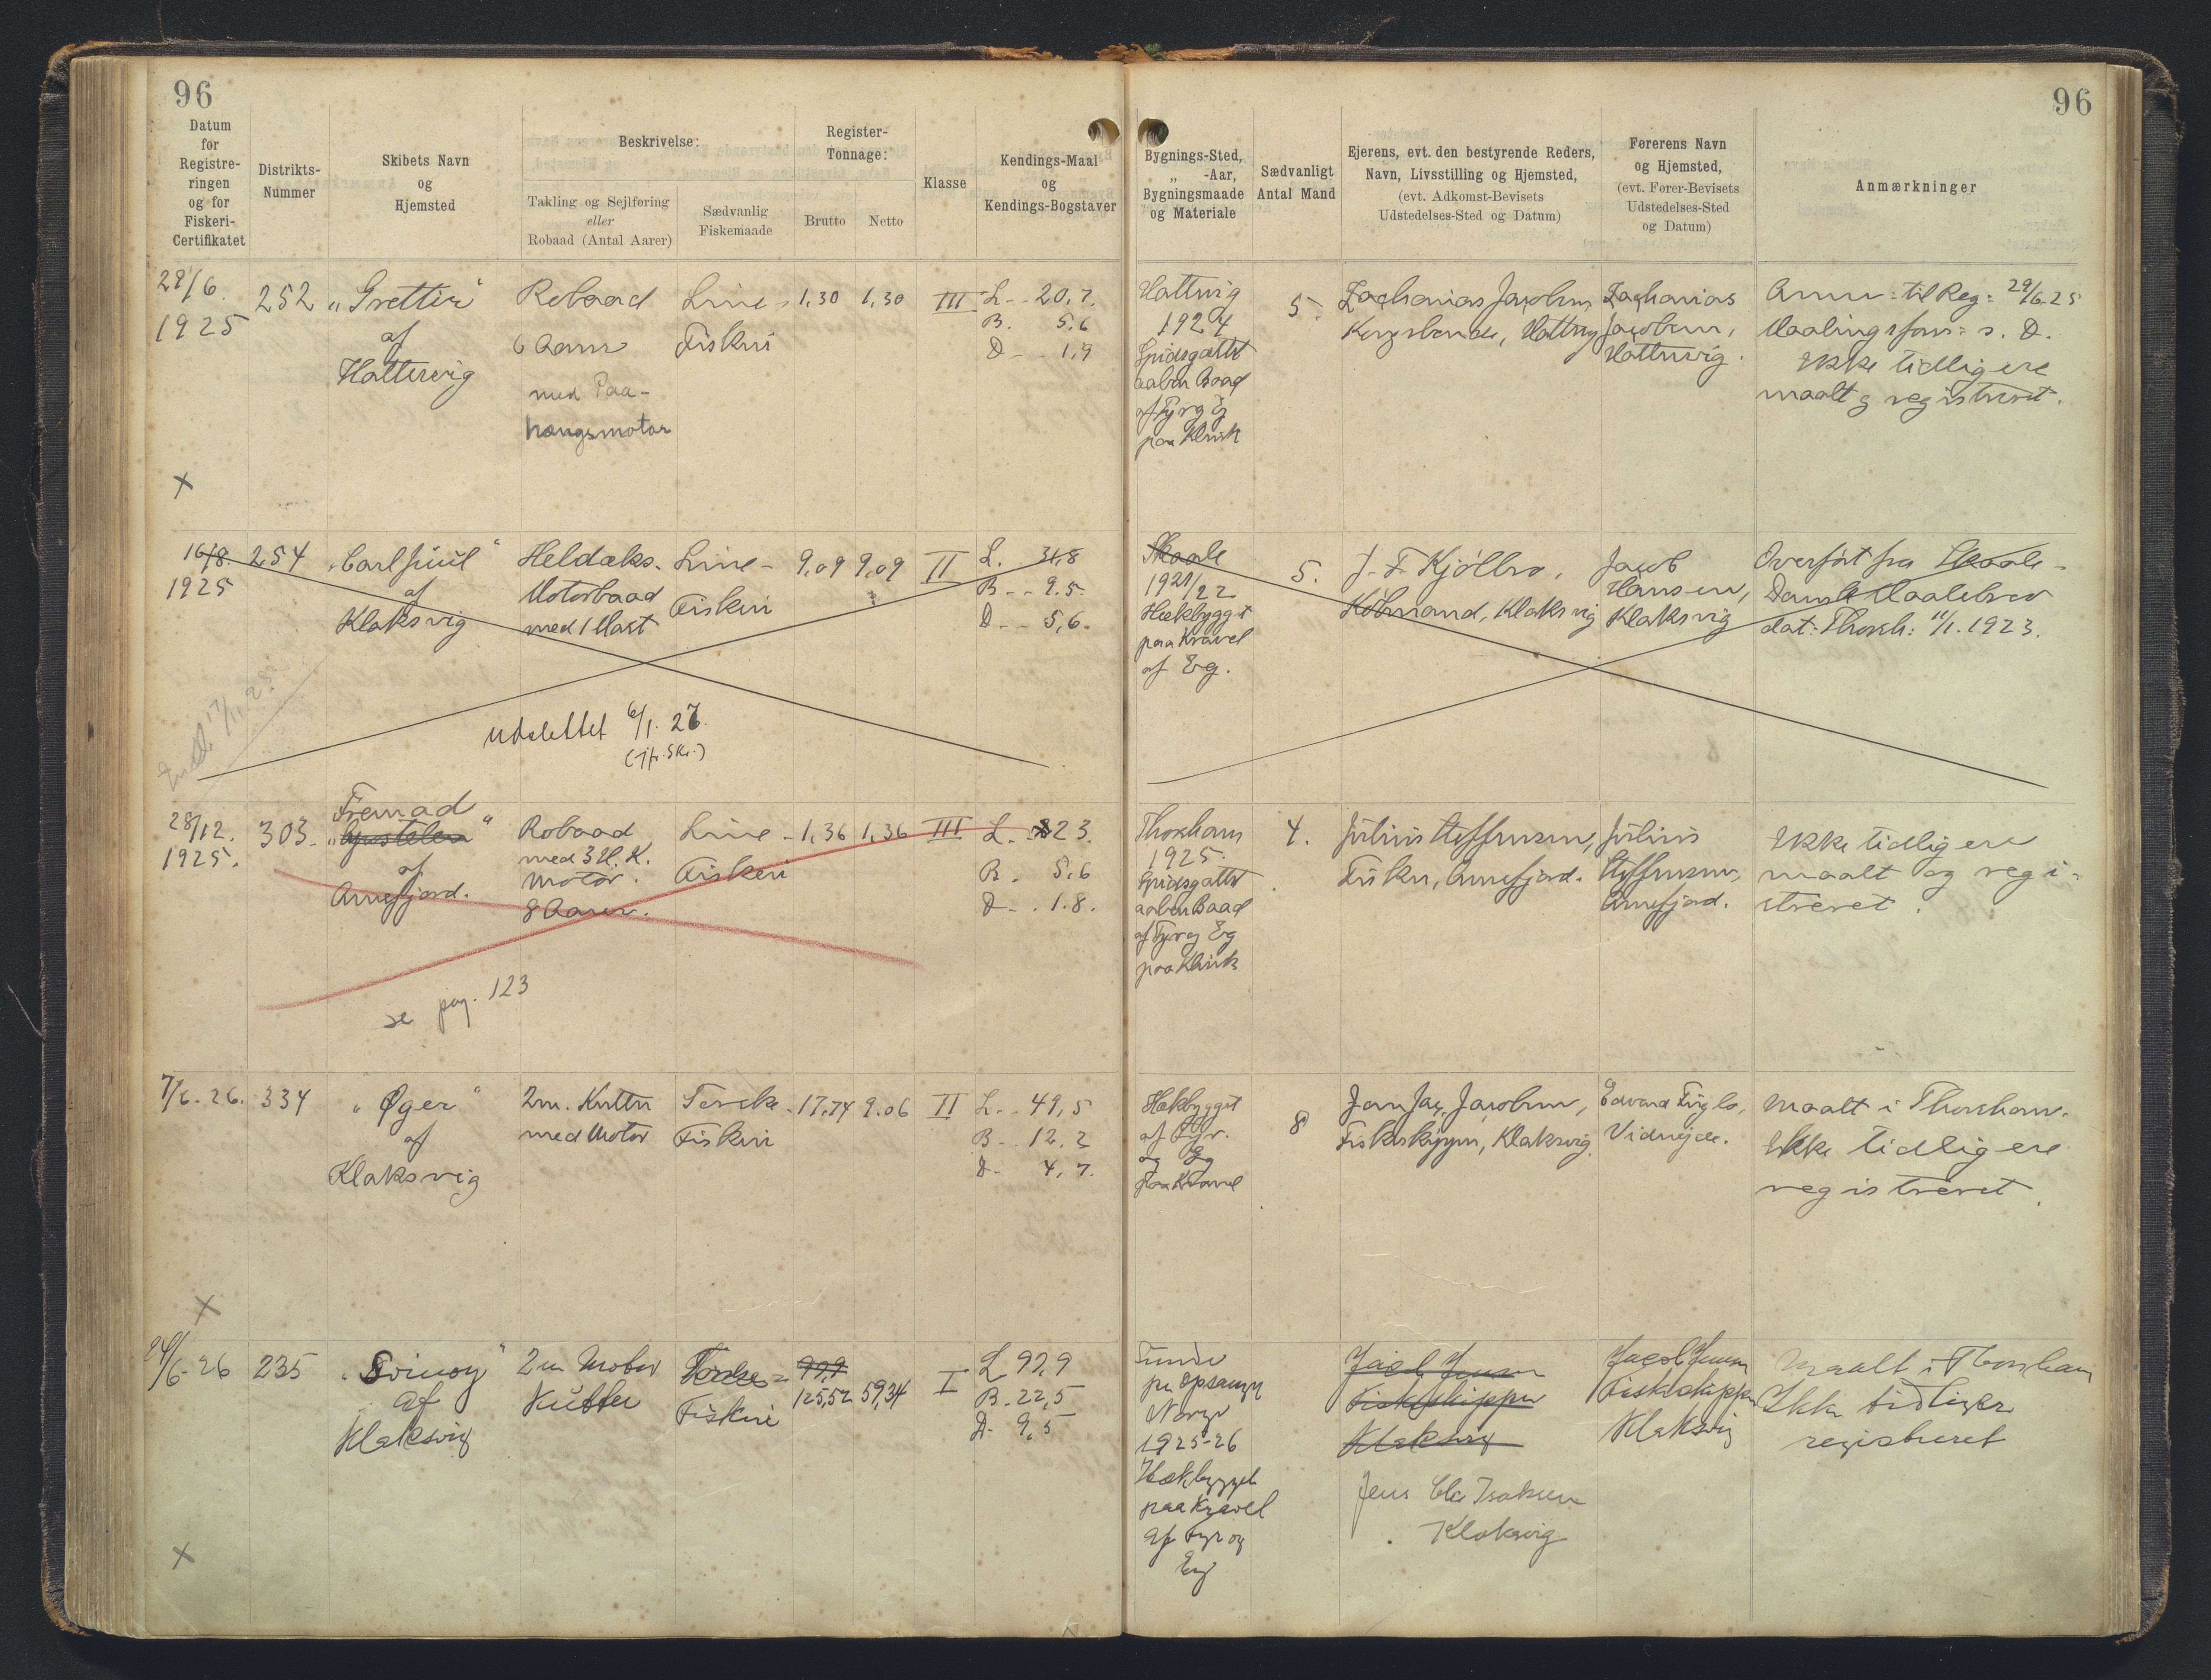 96
96
Datum
for
Registre-
ringen
og for
Fiskeri-
Certifikatet
Distrikts-
Nummer
Skibets Navn
og
Hjemsted
Beskrivelse:
Takling og Sejlføring
eller
Robaad (Antal Aarer)
Sædvanlig
Fiskemaade
Register-
Tonnage:
Brutto
Netto
Klasse
Kendings-Maal
og
Kendings-Bogstaver
Bygnings-Sted,
„ -Aar,
Bygningsmaade
og Materiale
Sædvanligt
Antal Mand
Ejerens, evt. den bestyrende Reders,
Navn, Livsstilling og Hjemsted,
(evt. Adkomst-Bevisets
Udstedelses-Sted og Datum)
Førerens Navn
og Hjemsted,
(evt. Fører-Bevisets
Udstedelses-Sted
og Datum)
Anmærkninger
29/6.
1925
252
„Gretter“
af
Hattervig
Robaad
6 Aarer
med Paa-
hængsmotor
Line-
Fiskeri
1,30
1,30
III
L. - 20,7.
B. 5,6
D - - 1,9
Hattervig
1924
Spidsgattet
aaben Baad
af Fyr og Eg
paa Klink
5.
Zacharias Jacobsen
Kongsbonde, Hattervig
Zacharias
Jacobsen,
Hattervig.
Anm: til Reg: 29/6.25
Maalingsforr: s. D.
Ikke tidligere
maalt og registreret.
x
16/8.
1925
254
„Carl Juul“
af
Klaksvig
Heldæks-
Motorbaad
med 1 Mast
Line-
Fiskeri
9,09
9,09
II
L. 31,8
B - - 9.5
D - - 5,6.
Skaale
1921/22
Hækbygget
paa Kravel
af Eg.
5.
J. F. Kjölbro,
Købmand, Klaksvig
Jacob
Hansen,
Klaksvig
Overført fra Skaale-
Dansk Maalebrev
dat: Thorsh: 11/1. 1923.
17/11.28.
udslettet 6/1. 27.
(Jfr. Skr.)
28/12.
1925.
303-
Fremad
„ “
af
Arnefjord.
Robaad
med 3 H. K.
Motor.
8 Aarer.
Line-
Fiskeri
1,36
1,36
III
L. - 23.
B. 5,6
D - . 1.8.
Thorshavn
1925.
Spidsgattet
aaben Baad
af Fyr og Eg
paa Klink
4.
Julius Steffensen,
Fisker, Arnefjord.
Julius
Steffensen,
Arnefjord.
Ikke tidligere
maalt og regi-
streret.
se pag. 123
7/6.26.
334
„Øger“
af
Klaksvig
2m. Kutter
med Motor
Torske-
Fiskeri
17,74
9.06
II
L. - 49,5
B - . 12.2
D - 4,7.
Hækbygget
af Fyr.
og Eg
paa Kravel
8
Jan Jac. Jacobsen,
Fiskeskipper, Klaksvig.
Edvard Fuglo,
Videjde.
Maalt i Thorshavn.
Ikke tidligere
registreret.
x
24/6-26
235
„Svinoy“
af
Klaksvig
2m Motor
Kutter
Torske-
Fiskeri
99,9
125,52
59,34
I
L 92,9
B. 22,5
D. 9,5
Norge
1925-26
Hækbygget
paa Kravel
af Fyr og
Eg
Jacob Jensen
Fiskeskipper
Klaksvig
Jens Isaksen
Klaksvig
Jacob Jensen
Fiskeskipper
Klaksvig
Maalt i Thorshavn
Ikke tidligere
registreret
x